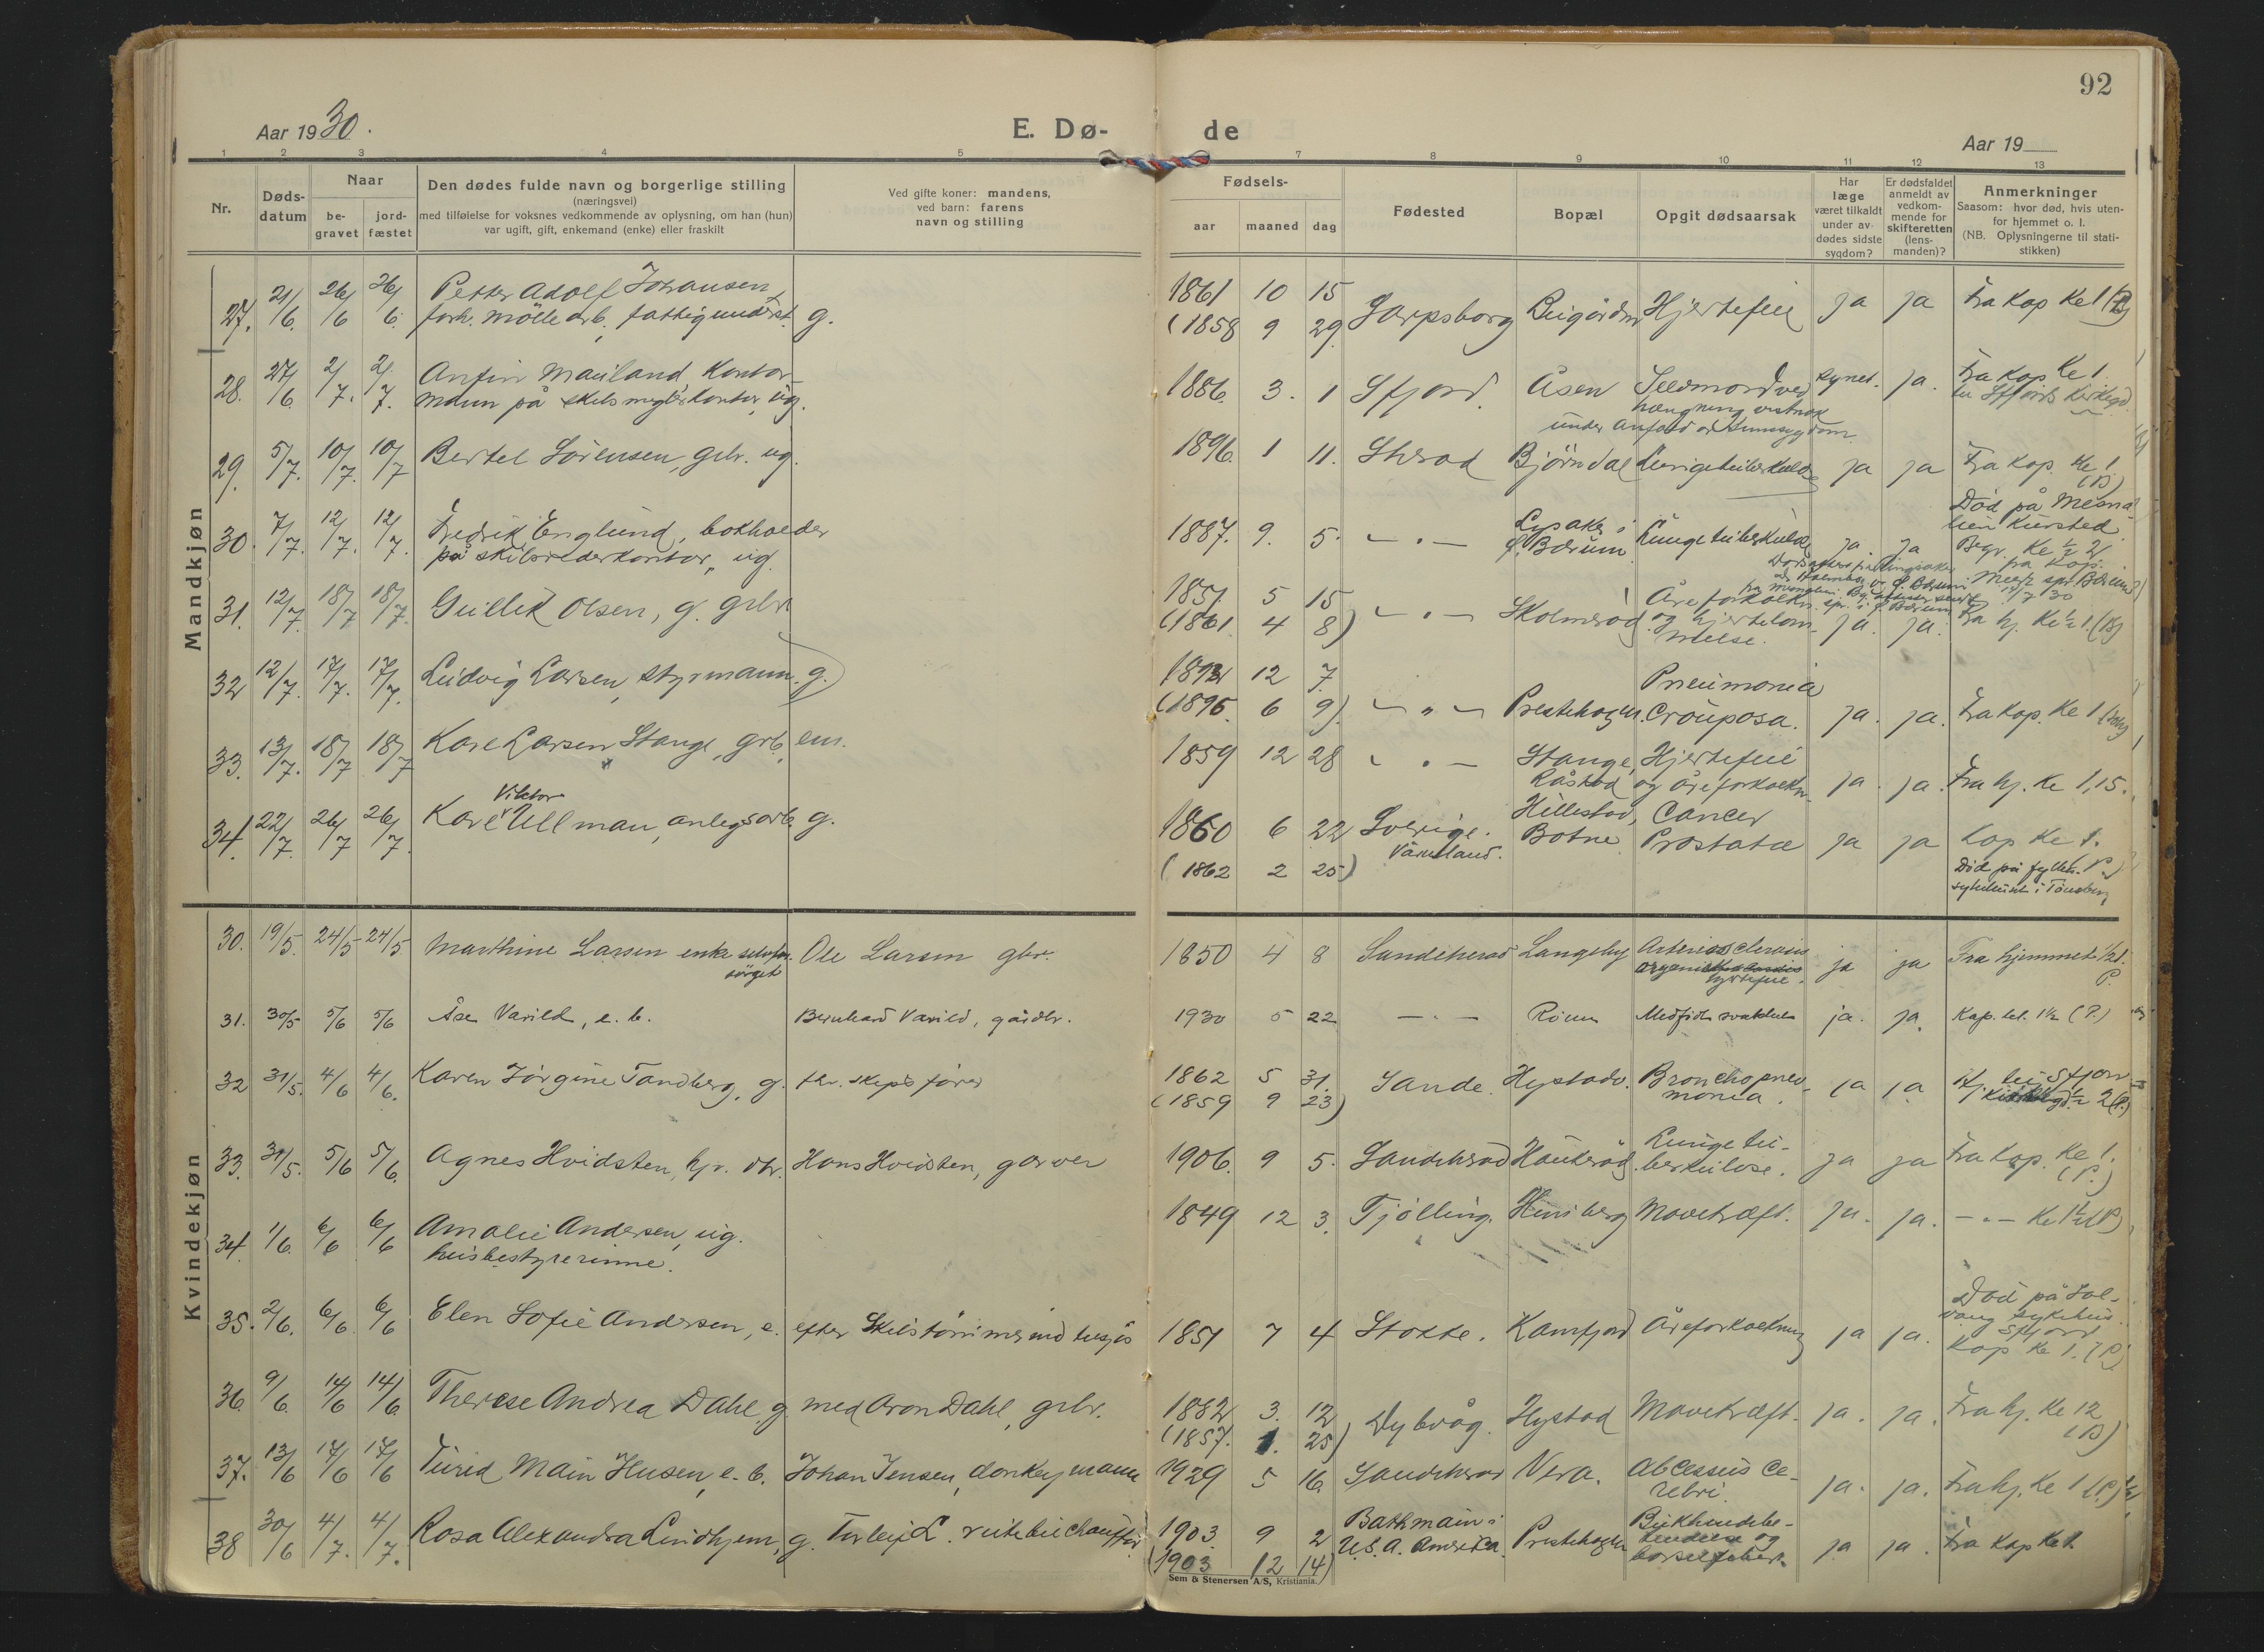 92
Aar 1930.
E. Dø-
de
Aar 19
1 2 3 4 5 7 8 9 10 11 12 13
Nr.
Døds-
datum
Naar
be-
gravet
jord-
fæstet
Den dødes fulde navn og borgerlige stilling
(næringsvei)
med tilføielse for voksnes vedkommende av oplysning, om han (hun)
var ugift, gift, enkemand (enke) eller fraskilt
Ved gifte koner: mandens,
ved barn: farens
navn og stilling
Fødsels-
aar maaned dag
Fødested
Bopæl
Opgit dødsaarsak
Har
læge
været tilkaldt
under av-
dødes sidste
sygdom?
Er dødsfaldet
anmeldt av
vedkom-
mende for
skifteretten
(lens-
manden)?
Anmerkninger
Saasom: hvor død, hvis uten-
for hjemmet o. l.
(NB. Oplysningerne til stati-
stikken)
Mandkjøn
27. 21/6. 26/6 26/6. Petter Adolf Johansen,
forh. möllearb., fattigunderst. g.
1861 10 15
(1858 9 29 Sarpsborg Hjertefeil ja ja Fra kap ke 1 (B)
28. 27/6. 2/7. 2/7. Anfin Mailand, Kontor-
mann på skibsmegler kontor, ug.
1886. 3. 1 Sfjord Åsen Selvmord ved synet. ja. Fra kap ke 1.
hængning vistnok til Sfjords kirkegd.
under anfald av sinnssygdom
29. 5/7. 10/7. 10/7 Bertel Sörensen, gbr. ug.
1896. 1 11. Sherad Björndal Lungetuberkulose ja ja Fra kap. ke 1.
(B)
30. 7/7. 12/7. 12/7. Fredrik Englund, bokholder
på skibsrederkontor, ug.
1887. 9. 5. — „ — Lysaker i
Ö. Bærum Lungetuberkulose ja ja
Död på Mesna-
lien Kursted.
Begr. ke ½ 2
fra kap.
31. 12/7. 18/7 18/7. Gullik Olsen, g. gbr.
1851 5 15
(1861 4 8) — „ — Skolmeröd Åreforkalkn.
og hjertelam-
melse. ja. ja. Fra hj. ke ½ 1 (B)
32 12/7. 17/7. 17/7. Ludvig Larsen, styrmann. g.
1893 12 7
(1895 6 9). — „ — Prestehagen. Pneumonia
crouposa. ja. ja. Fra kap. ke 1
33. 13/7. 18/7 18/7 Karl Larsen Stange, grb., em.
1859 12 28 „ „ — Stange,
Råstad Hjertefeil
og åreforkalkn. ja. ja. Fra hj. ke 1,15.
34. 22/7. 26/7 26/7. Karl Viktor Ullman, anlegsarb. g.
1860 6 22 Sverige.
Värmland.
(1862 2 25) Hillestad,
Botne Cancer
Prostatae ja ja Kap ke 1.
(P.)
Död på fylkes-
sykehuset i Tönsberg
Kvindekjøn
30. 19/5. 24/5 24/5 Marthine Larsen enke selvfor-
sörget Ole Larsen gbr.
1850 4 8 Sandeherad Langeby Arteriosclerosis
hjertefeil. ja ja Fra hjemmet ½1.
P.
31. 30/5 5/6 5/6 Åse Varild, e. b. Bernhard Varild, gårdbr.
1930 5 22 — „ — Medfödt svakhet ja. ja. Kap. kl. 1½ (P.)
32 31/5. 4/6 4/6. Karen Jörgine Tandberg, g. fhv. skipsförer
1862 5 31.
(1859 9 23) Sande. Hystadv. Bronchopneu-
monia. ja ja
33. 31/5. 5/6 5/6. Agnes Hvidsten, hj. dtr. Hans Hvidsten, garver
1906. 9 5. Sandeherad Haukeröd. Lungetu-
berkulose. ja ja Fra kap. ke 1.
(P.)
34. 1/6. 6/6 6/6 Amalie Andersen, ug.
husbestyrerinne.
1849 12 3. Tjölling. Himberg Mavekræft. ja. ja. — „ — ke 1½ (P)
35. 2/6. 6/6. 6/6 Elen Sofie Andersen, e. efter Skibstömmermd
1851 7 4 Stokke. Kamfjord Åreforkalkning ja ja.
Död på Sol-
vang sykehus.
Sfjord
Kap ke 1. (P)
36. 9/6. 14/6 14/6. Therese Andrea Dahl, g. med Aron Dahl, gbr.
1882 3. 12
(1857. 1. 25) Dybvåg. Hystad Mavekræft. ja. ja. Fra hj. ke 12
(B)
37. 13/6 17/6 17/6 Turid Main Husen, e. b. Johan Jensen, donkeymann
1929 5 16. Sandeherad Vera. Abcessus ce-
rebri. ja. ja. Fra hj. ke 1 (P.)
38 30/6 4/7. 4/7. Rosa Alexandra Lindhjem, g. Torleif L. rutebilchauffør.
1903. 9 2
(1903 12 14) U.S.A. Amerika. Prestehagen Bukhindebe-
tendelse og
barselfeber. ja ja. Fra kap ke 1.
Sem & Stenersen A/S, Kristiania.